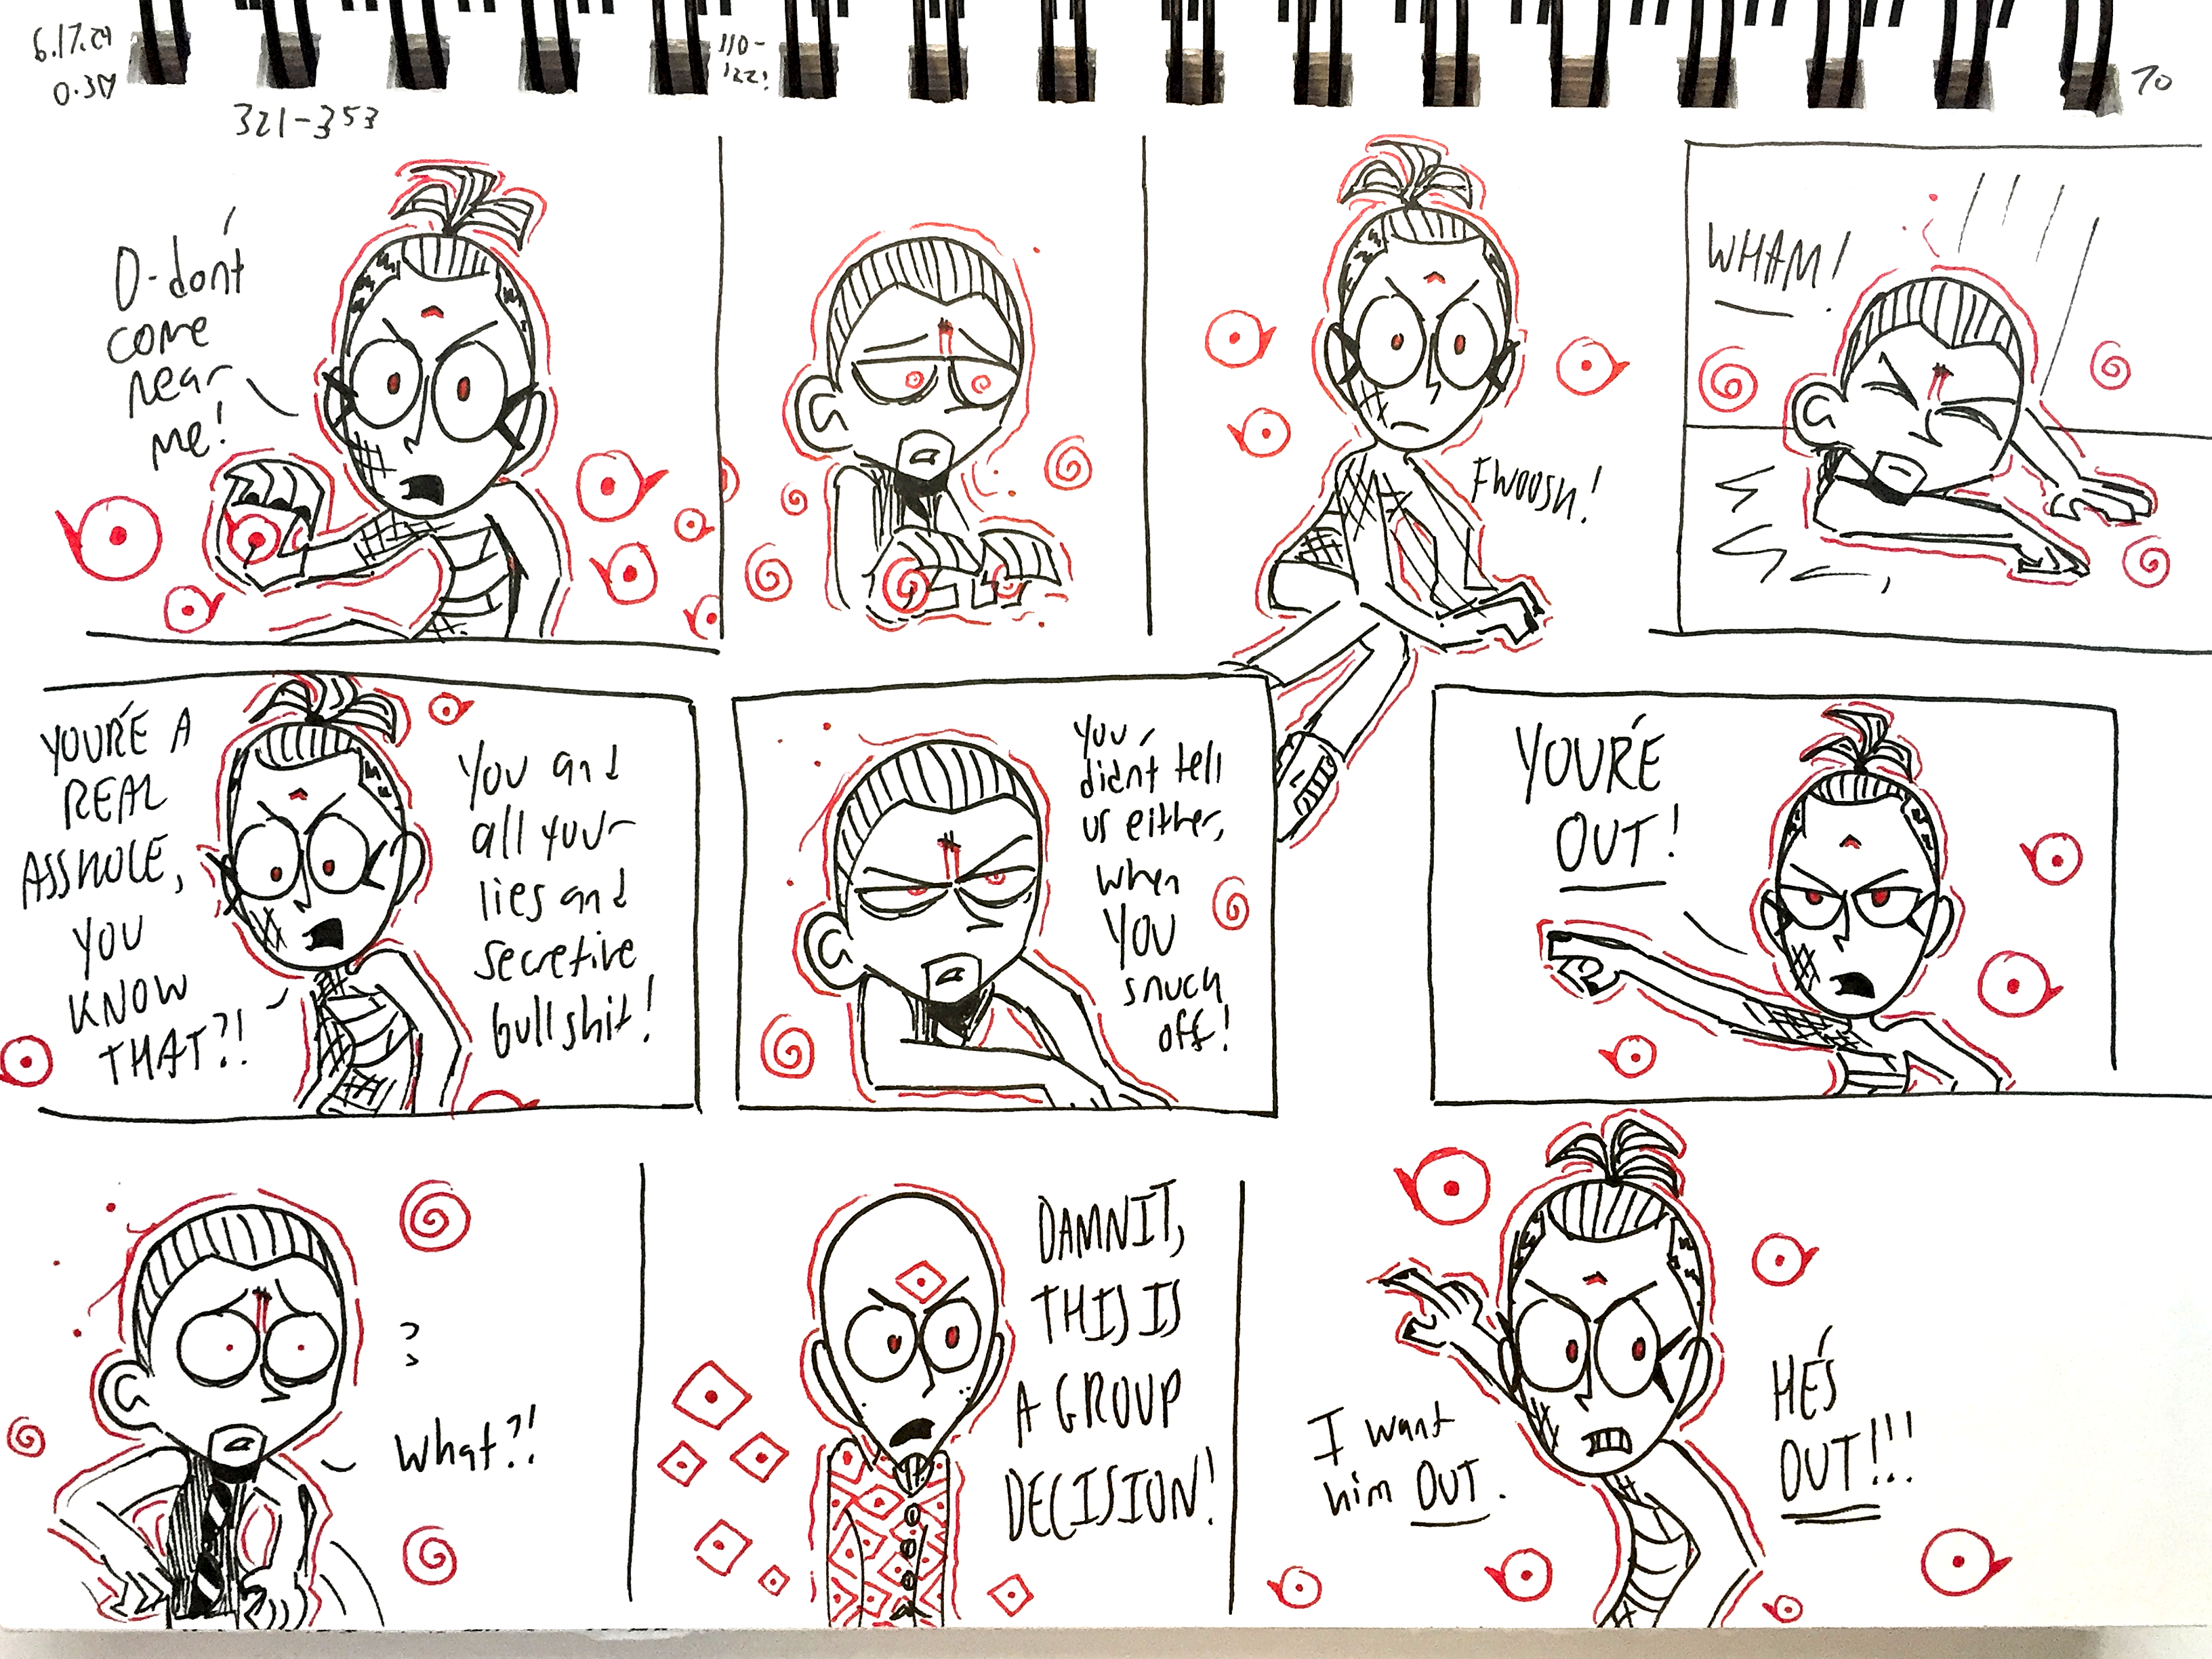 6.17.24
0.30
321-353
110-
122!
70
D-don't
come
near
me!
FWOOSH!
WHAM!
YOUR'E A
REAL
ASSHOLE,
YOU
KNOW
THAT?!
You and
all your
lies and
secretive
bullshit!
You
didn't tell
us either,
when
YOU
snuck
off!
YOUR'E
OUT!
??
What?!
DAMNIT,
THIS IS
A GROUP
DECISION!
I want
him OUT.
HE'S
OUT!!!